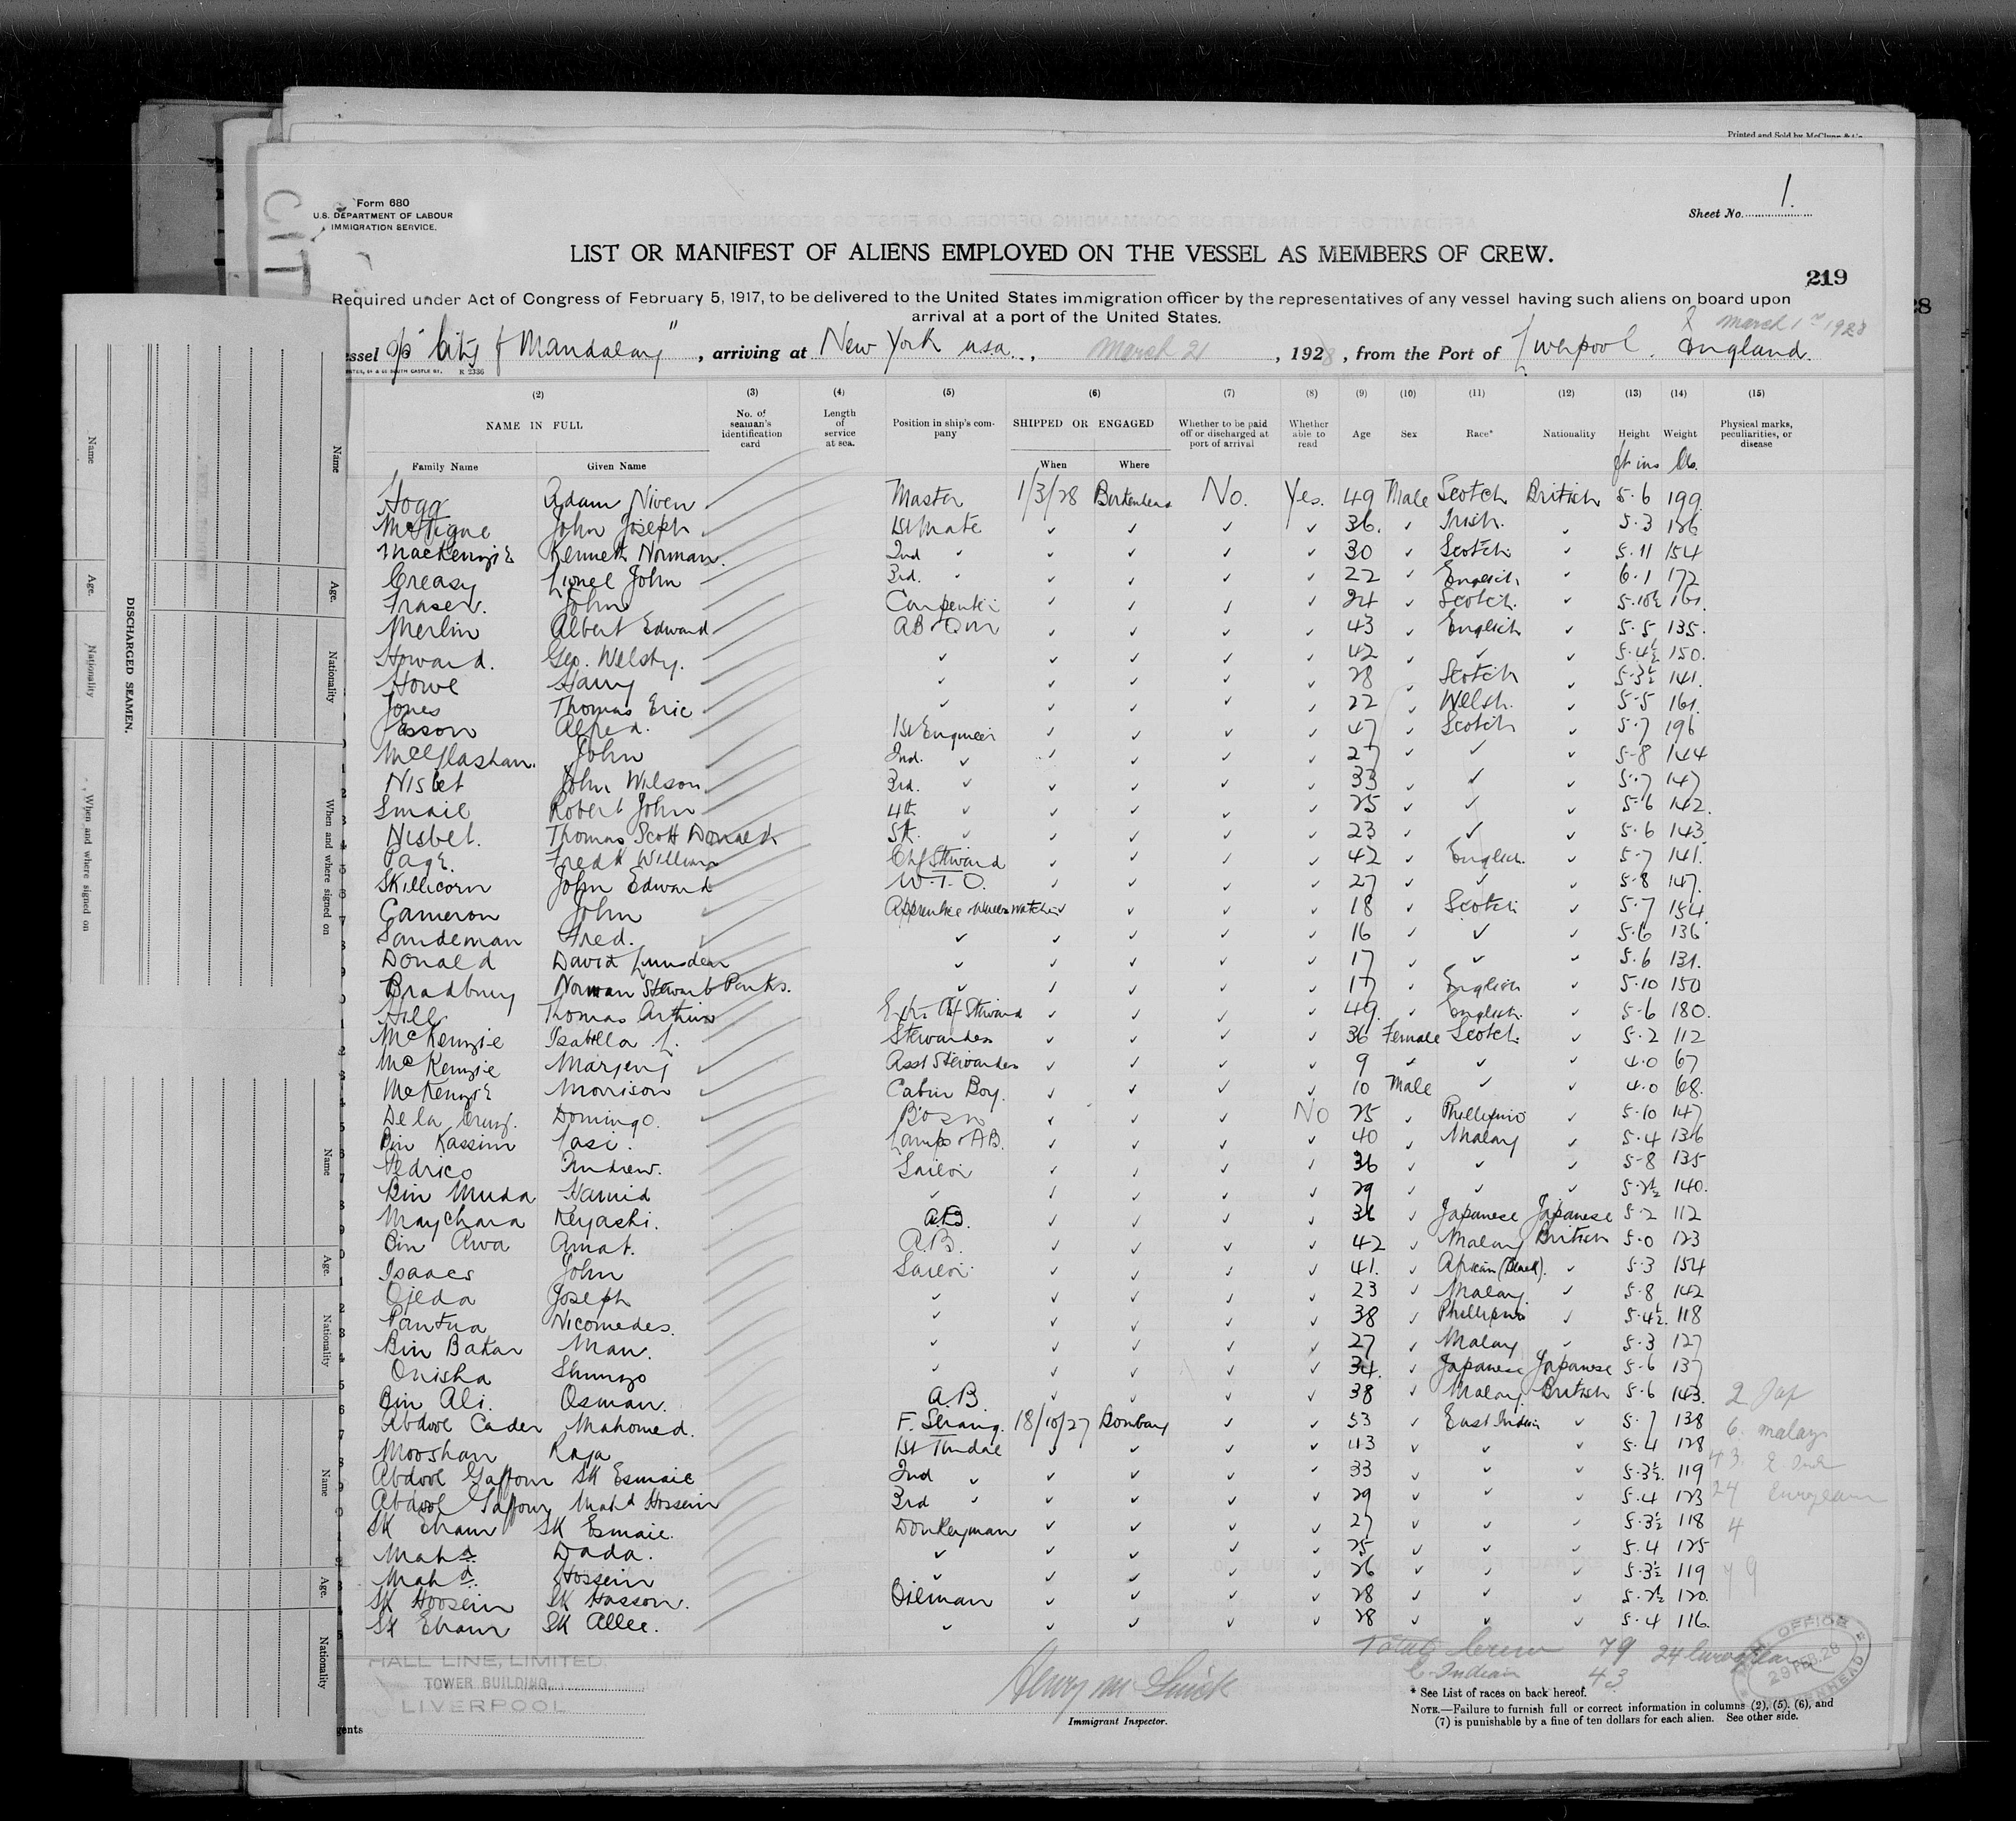 Printed and Sold by McClunn & Co.
Form 680
U.S. DEPARTMENT OF LABOUR
IMMIGRATION SERVICE.
CIT
Sheet No. 1.
LIST OR MANIFEST OF ALIENS EMPLOYED ON THE VESSEL AS MEMBERS OF CREW.
219
Required under Act of Congress of February 5, 1917, to be delivered to the United States immigration officer by the representatives of any vessel having such aliens on board upon
arrival at a port of the United States.
March 1st 1928
ssel "City of Mandalay", arriving at New York U.S.A., March 21, 1928, from the Port of Liverpool. England.
R 2336
(2) (3) (4) (5) (6) (7) (8) (9) (10) (11) (12) (13) (14) (15)
NAME IN FULL No. of seaman's identification card Length of service at sea. Position in ship's company SHIPPED OR ENGAGED Whether to be paid off or discharged at port of arrival Whether able to read Age Sex Race* Nationality Height Weight Physical marks, peculiarities, or disease
Family Name Given Name When Where ft ins lbs.
Hogg Adam Niven Master 1/3/28 Birkenhead No. Yes. 49 Male Scotch British 5.6 199
McTigue John Joseph 1st Mate ✓ ✓ ✓ ✓ 36. ✓ Irish. ✓ 5.3 186
MacKenzie Kenneth Norman. 2nd ✓ ✓ ✓ ✓ ✓ 30 ✓ Scotch ✓ 5.11 154
Creasy Lionel John 3rd. ✓ ✓ ✓ ✓ ✓ 22 ✓ English ✓ 6.1 172
Fraser. John Carpenter ✓ ✓ ✓ ✓ 24 ✓ Scotch. ✓ 5.10½ 161.
Merlin Albert Edward AB & QM ✓ ✓ ✓ ✓ 43 ✓ English ✓ 5.5 135.
Howard. Geo. Welsby. ✓ ✓ ✓ ✓ ✓ 42 ✓ ✓ ✓ 5.4½ 150.
Howe Harry ✓ ✓ ✓ ✓ ✓ 28 ✓ Scotch ✓ 5.3½ 141.
Jones Thomas Eric ✓ ✓ ✓ ✓ ✓ 22 ✓ Welsh. ✓ 5.5 161.
Esson Alfred. 1st Engineer ✓ ✓ ✓ ✓ 47 ✓ Scotch ✓ 5.7 196
McGlashan. John 2nd. ✓ ✓ ✓ ✓ ✓ 27 ✓ ✓ ✓ 5-8 144
Nisbet John Wilson 3rd. ✓ ✓ ✓ ✓ ✓ 33 ✓ ✓ ✓ 5.7 147
Smail Robert John 4th ✓ ✓ ✓ ✓ ✓ 25 ✓ ✓ ✓ 5-6 142.
Nisbet. Thomas Scott Donald 5th. ✓ ✓ ✓ ✓ ✓ 23 ✓ ✓ ✓ 5.6 143
Page. Fredk William Chf Steward ✓ ✓ ✓ ✓ 42 ✓ English. ✓ 5-7 141.
Skillicorn John Edward W.T.O. ✓ ✓ ✓ ✓ 27 ✓ ✓ ✓ 5-8 147.
Cameron John Apprentice ✓ ✓ ✓ ✓ 18 ✓ Scotch ✓ 5.7 154
Sandeman Fred. ✓ ✓ ✓ ✓ ✓ 16 ✓ ✓ ✓ 5.6 136
Donald David Lumsden ✓ ✓ ✓ ✓ ✓ 17 ✓ ✓ ✓ 5.6 131.
Bradbury Norman Stewart Parks. ✓ ✓ ✓ ✓ ✓ 17 ✓ English ✓ 5.10 150
Hill Thomas Arthur Extr. Chf Steward ✓ ✓ ✓ ✓ 49. ✓ English. ✓ 5-6 180.
McKenzie Isabella L. Stewardess ✓ ✓ ✓ ✓ 36 Female Scotch. ✓ 5.2 112
McKenzie Marjery Asst Stewardess ✓ ✓ ✓ ✓ 9 ✓ ✓ ✓ 4.0 67
McKenzie Morrison Cabin Boy. ✓ ✓ ✓ ✓ 10 Male ✓ ✓ 4.0 68.
De la Cruz. Domingo. Bosn ✓ ✓ ✓ No 25 ✓ Phillipino ✓ 5.10 147
Bin Kassim Lamps & AB. ✓ ✓ ✓ ✓ 40 ✓ Malay ✓ 5.4 136
Fedrico Andrew. Sailor ✓ ✓ ✓ ✓ 36 ✓ ✓ ✓ 5-8 135
Bin Muda Hamid ✓ ✓ ✓ ✓ ✓ 29 ✓ ✓ ✓ 5.2½ 140.
Maychara Keyashi. A.B. ✓ ✓ ✓ ✓ 36 ✓ Japanese Japanese 5.2 112
Bin Awa Amat. A.B. ✓ ✓ ✓ ✓ 42 ✓ Malay British 5.0 123
Isaacs John Sailor ✓ ✓ ✓ ✓ 41. ✓ African (Black). ✓ 5.3 154
Ojeda Joseph ✓ ✓ ✓ ✓ ✓ 23 ✓ Malay ✓ 5.8 142
Pantua Nicomedes. ✓ ✓ ✓ ✓ ✓ 38 ✓ Phillipino ✓ 5.4½. 118
Bin Bakar Man. ✓ ✓ ✓ ✓ ✓ 27 ✓ Malay ✓ 5.3 127
Onisha Shunzo ✓ ✓ ✓ ✓ ✓ 34. ✓ Japanese Japanese 5.6 137
Bin Ali. Osman. A.B. ✓ ✓ ✓ ✓ 38 ✓ Malay. British 5.6 143. 2 Jap
Abdool Cader Mahomed. F. Serang. 18/10/27 Bombay ✓ ✓ 53 ✓ East Indian ✓ 5.7 138 6. malay
Mooshan Raja 1st Tindal ✓ ✓ ✓ ✓ 43 ✓ ✓ ✓ 5.4 128 43. E Ind
Abdool Gaffour SK Esmail 2nd ✓ ✓ ✓ ✓ ✓ 33 ✓ ✓ ✓ 5.3½. 119
Abdool Gaffour Mahd Hossein 3rd ✓ ✓ ✓ ✓ ✓ 29 ✓ ✓ ✓ 5.4 123 24 European
SK Ebam SK Esmail. Donkeyman ✓ ✓ ✓ ✓ 27 ✓ ✓ ✓ 5.3½ 118 4
Mahd. Dada. ✓ ✓ ✓ ✓ ✓ 25 ✓ ✓ ✓ 5.4 125
Mahd. Hossein ✓ ✓ ✓ ✓ ✓ 26 ✓ ✓ ✓ 5.3½ 119 79
SK Hoosein SK Hasson. Oilman ✓ ✓ ✓ ✓ 28 ✓ ✓ ✓ 5.2½ 120.
SK Ebam SK Allee. ✓ ✓ ✓ ✓ ✓ 28 ✓ ✓ ✓ 5.4 116.
Total Crew 79 24 European
E. Indian 43
HALL LINE, LIMITED.
TOWER BUILDING,
LIVERPOOL
gents
Immigrant Inspector.
OFFICE
29 FEB. 28
* See List of races on back hereof.
NOTE.—Failure to furnish full or correct information in columns (2), (5), (6), and
(7) is punishable by a fine of ten dollars for each alien. See other side.
DISCHARGED SEAMEN.
Name
Age.
Nationality
When and where signed on
Name
Age.
Nationality
When and where signed on
Name
Age.
Nationality
Name
Age.
Nationality